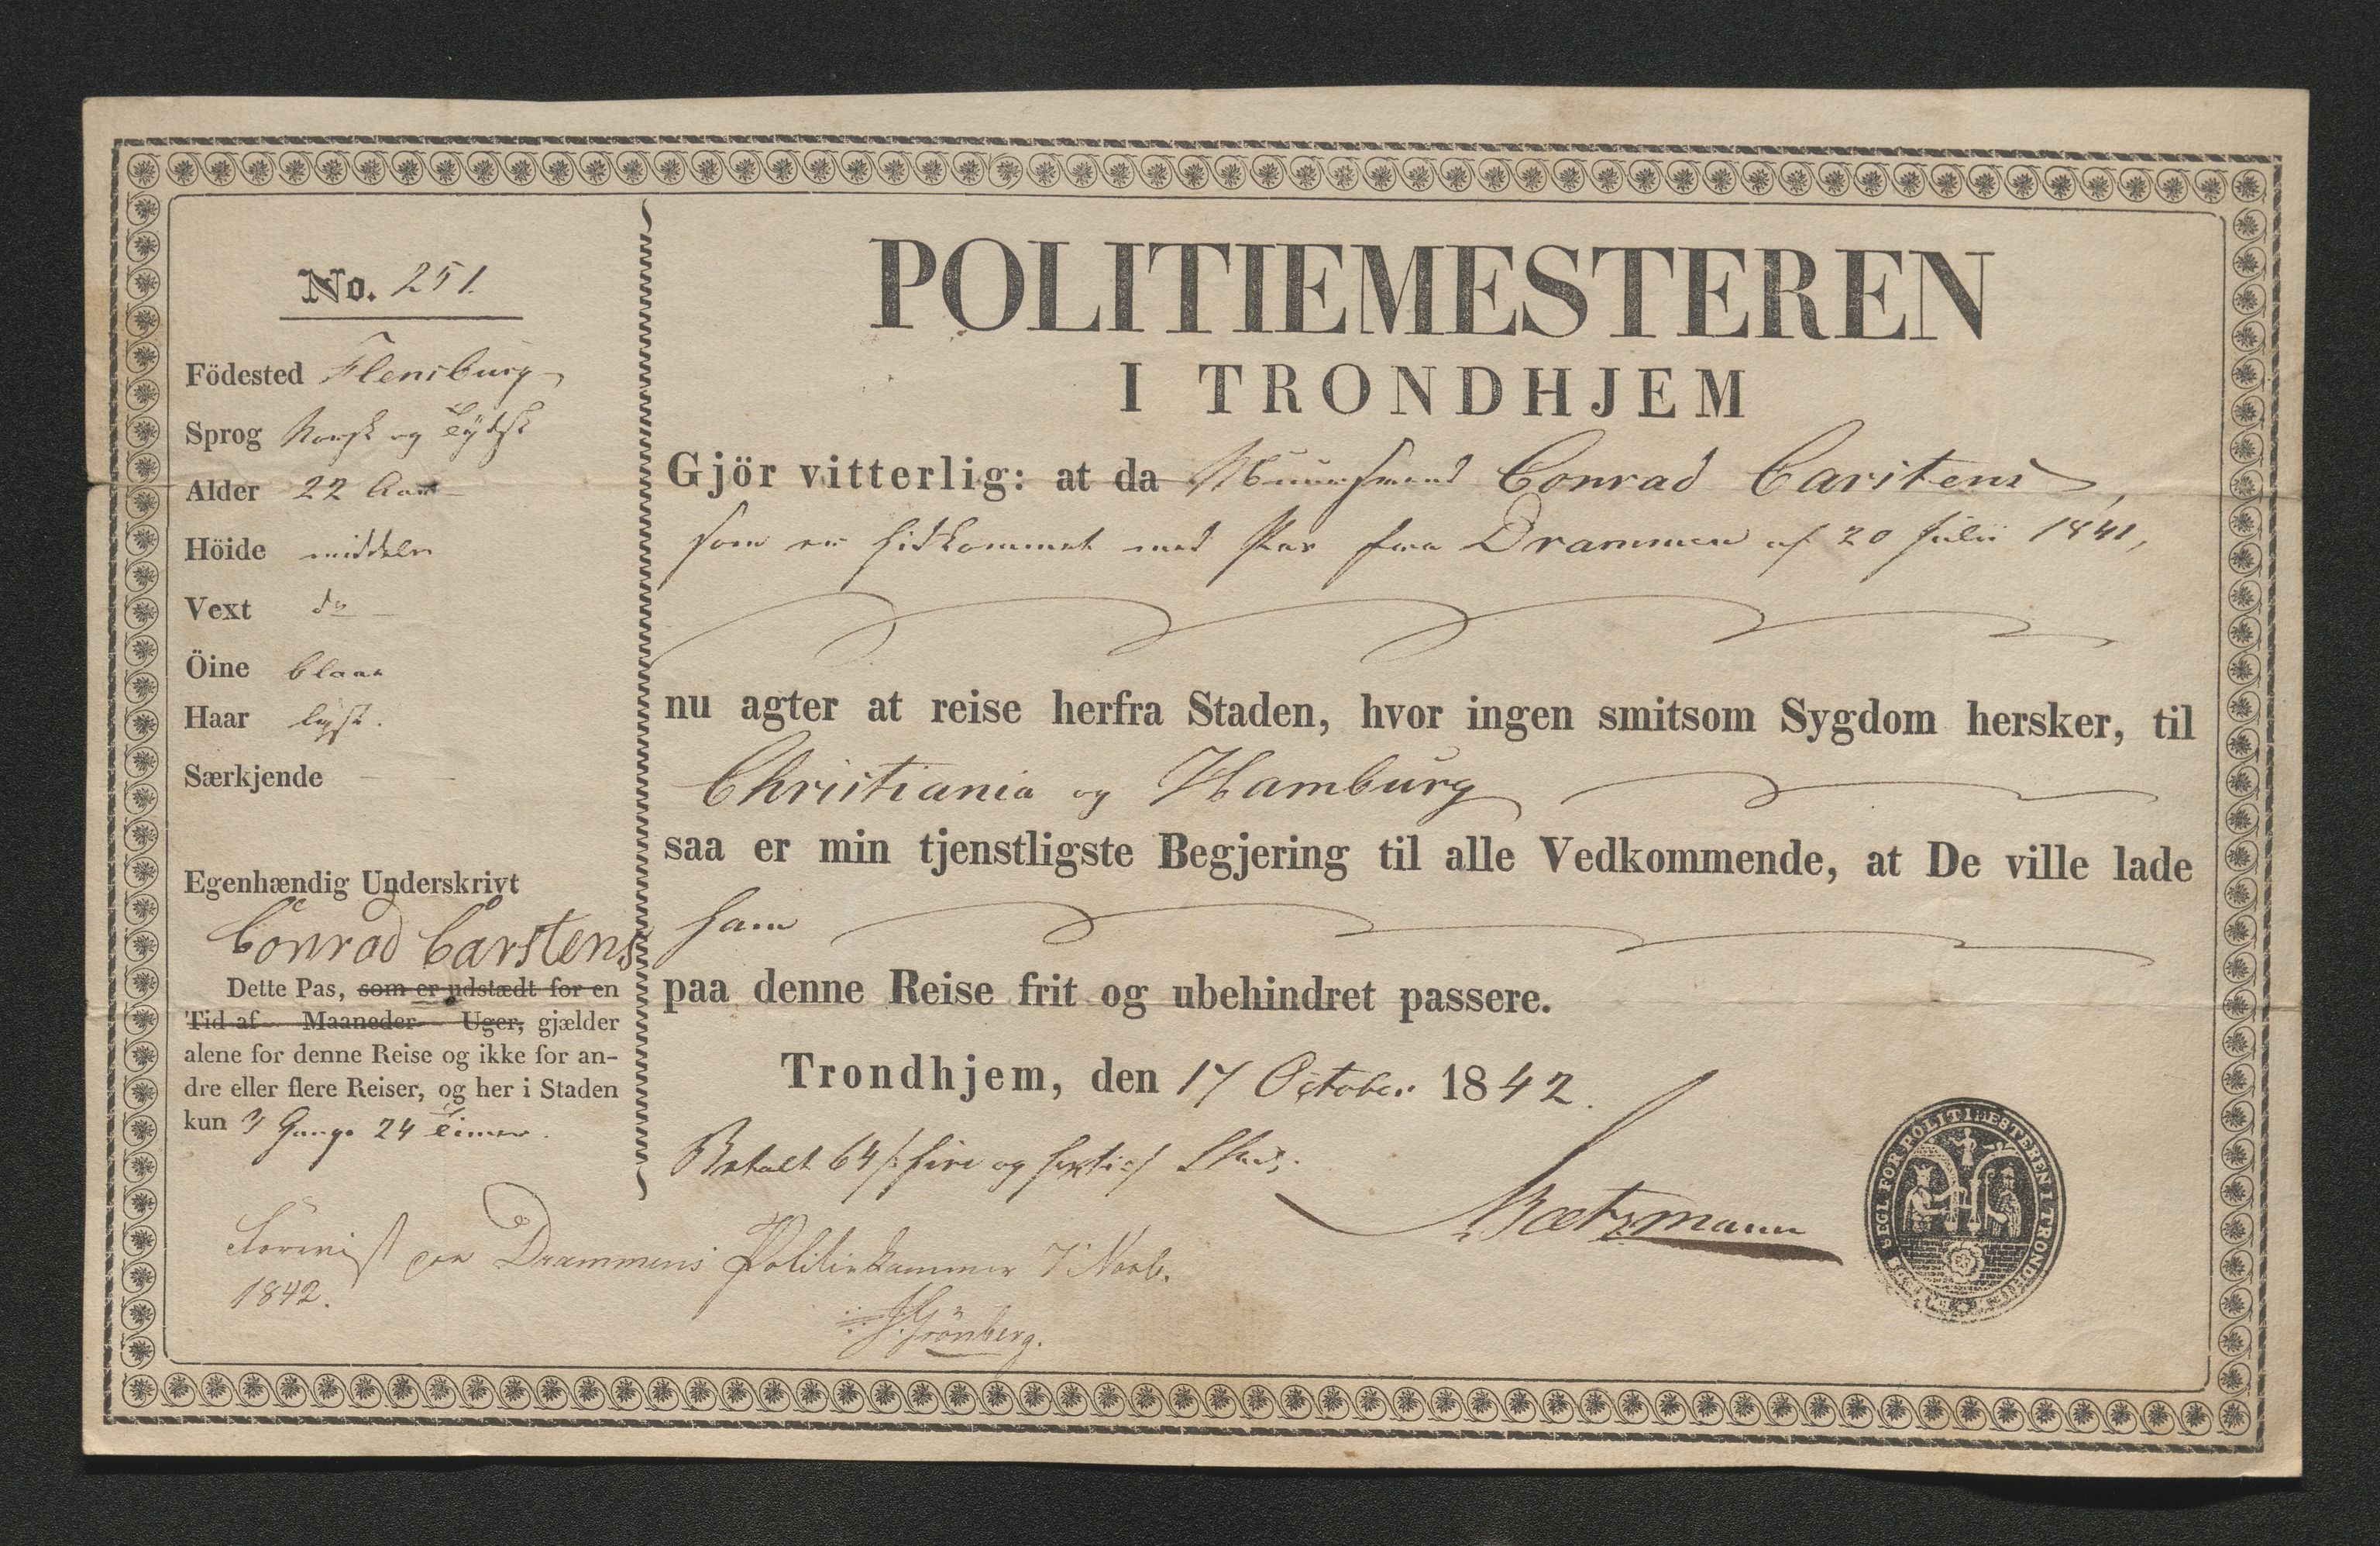 No. 251.
Födested Flensburg
Sprog Norsk og Tydsk
Alder 22 Aar
Höide middels
Vext do
Öine blaae
Haar lyst.
Særkjende
Egenhændig Underskrivt
Conrad Carstens
Dette Pas, som er udstædt for en
Tid af Maaneder Uger, gjælder
alene for denne Reise og ikke for an-
dre eller flere Reiser, og her i Staden
kun 3 Gange 24 Timer.
POLITIEMESTEREN
I TRONDHJEM
Gjör vitterlig: at da Conrad Carstens,
som er hidkommet med Pas fra Drammen af 20 Julii 1841,
nu agter at reise herfra Staden, hvor ingen smitsom Sygdom hersker, til
Christiania og Hamburg
saa er min tjenstligste Begjering til alle Vedkommende, at De ville lade
ham
paa denne Reise frit og ubehindret passere.
Trondhjem, den 17 October 1842.
Betalt 64 /: fire og sexti :/ Skill.
Baetzmann
SEGL FOR POLITIMESTEREN I TRONDHJEM
Foreviist paa Drammens Politiekammer 7 Novb.
1842.
Grönberg.